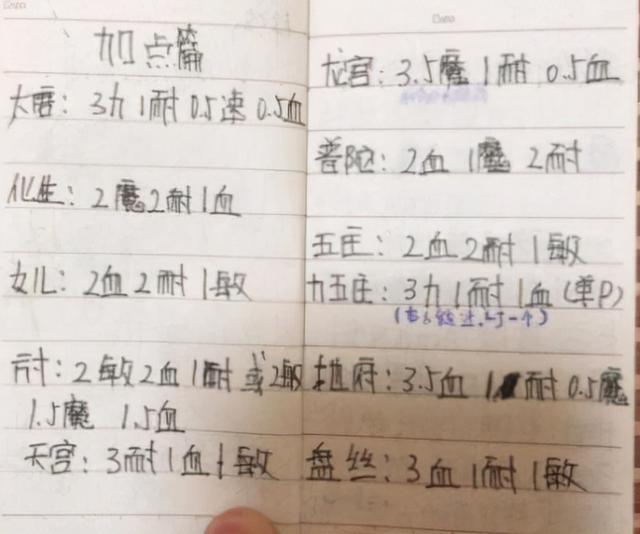 加点篇
大唐：3力 1耐 0.5速 0.5血
化生：2魔2耐1血
女儿：2血2耐1敏
方寸：2敏2血1耐 或2敏
1.5魔 1.5血
天宫：3耐1血1敏
Date
龙宫：3.5魔 1耐 0.5血
普陀：2血 1魔 2耐
五庄：2血2耐1敏
力五庄：3力1耐1血(单P)
地府：3.5血 1耐0.5魔
盘丝：3血1耐1敏